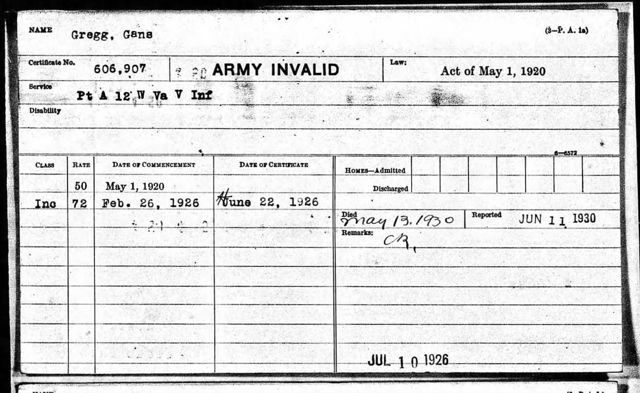 NAME Gregg, Gans (3-P. A. 1a)
Certificate No. 606,907 ARMY INVALID Law: Act of May 1, 1920
Service Pt A 12 W Va V Inf
Disability
6-6572
CLASS RATE DATE OF COMMENCEMENT DATE OF CERTIFICATE HOMES—Admitted
Discharged
50 May 1, 1920
Inc 72 Feb. 26, 1926 June 22, 1926
Died May 13, 1930 Reported JUN 11 1930
Remarks:
JUL 10 1926